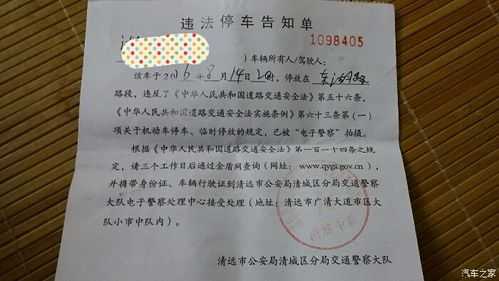 违法停车告知单
1098405
）车辆所有人/驾驶人：
该车于2016年8月14日 时，停放在
路段，违反了《中华人民共和国道路交通安全法》第五十六条、
《中华人民共和国道路交通安全法实施条例》第六十三条第（一）
项关于机动车停车、临时停放的规定，已被“电子警察”拍摄。
根据《中华人民共和国道路交通安全法》第一百一十四条之规
定，请三个工作日后通过金盾网查询（网址：www.qyga.gov.cn），
并携带身份证、车辆行驶证到清远市公安局清城区分局交通警察
大队电子警察处理中心接受处理（地址：清远市广清大道市区大
队小市中队内）。
清远市公安局清城区分局交通警察大队
汽车之家